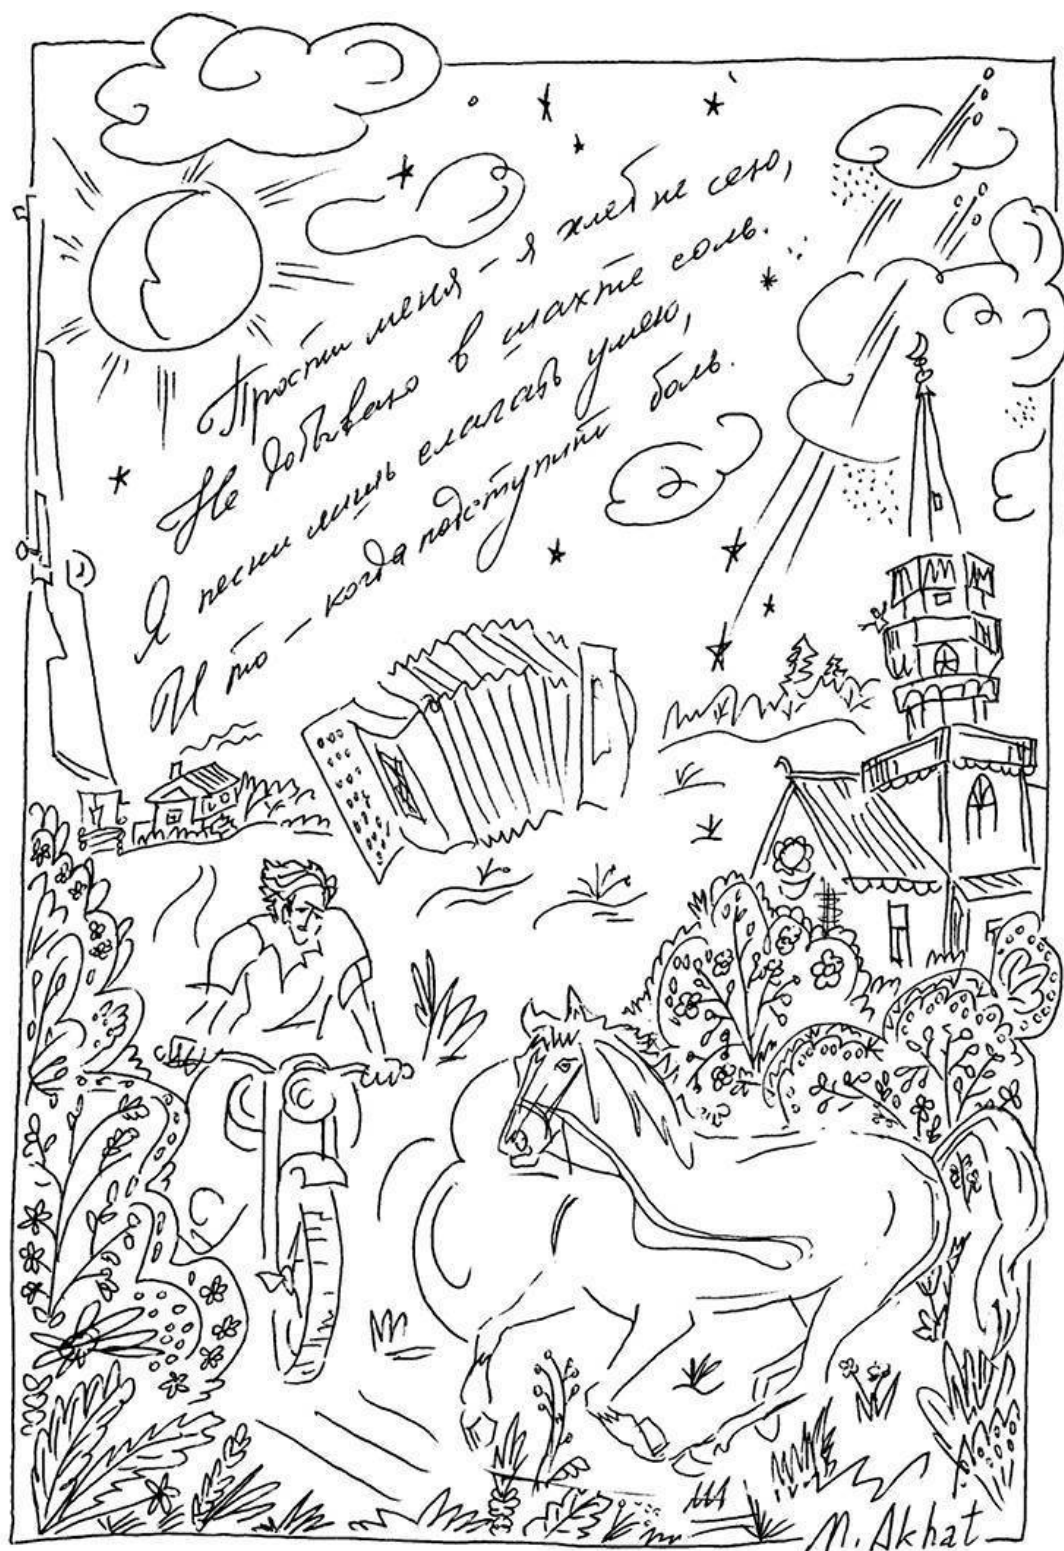 Прости меня – я хлеб не сею,
Не добываю в шахте соль.
Я песни лишь слагать умею,
И то – когда подступит боль.
M. Akhat